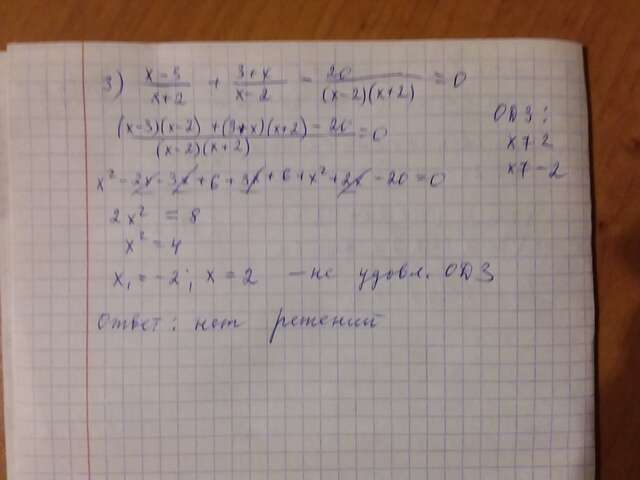 3) (x-3)/(x+2) + (3+x)/(x-2) - 20/((x-2)(x+2)) = 0
((x-3)(x-2) + (3+x)(x+2) - 20)/((x-2)(x+2)) = 0
ОДЗ:
x≠2
x≠-2
x² - 2x - 3x + 6 + 3x + 6 + x² + 2x - 20 = 0
2x² = 8
x² = 4
x₁ = -2; x = 2 - не удовл. ОДЗ
Ответ: нет решений